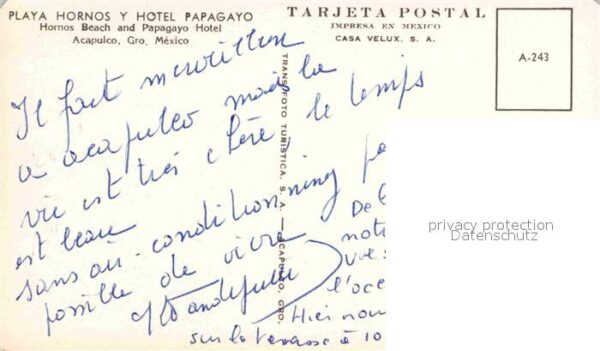 PLAYA HORNOS Y HOTEL PAPAGAYO
Hornos Beach and Papagayo Hotel
Acapulco, Gro, México
TARJETA POSTAL
IMPRESA EN MEXICO
CASA VELUX. S. A.
A-243
TRANS. FOTO TURISTICA, S. A. — ACAPULCO, GRO.
Il fait
a acapulco mais la
vie est très chère le temps
est beau
sans air-conditionning pa
possible de vivre
De
notr
vue
l'océ
Hier nou
sur la terrasse à 10
privacy protection
Datenschutz